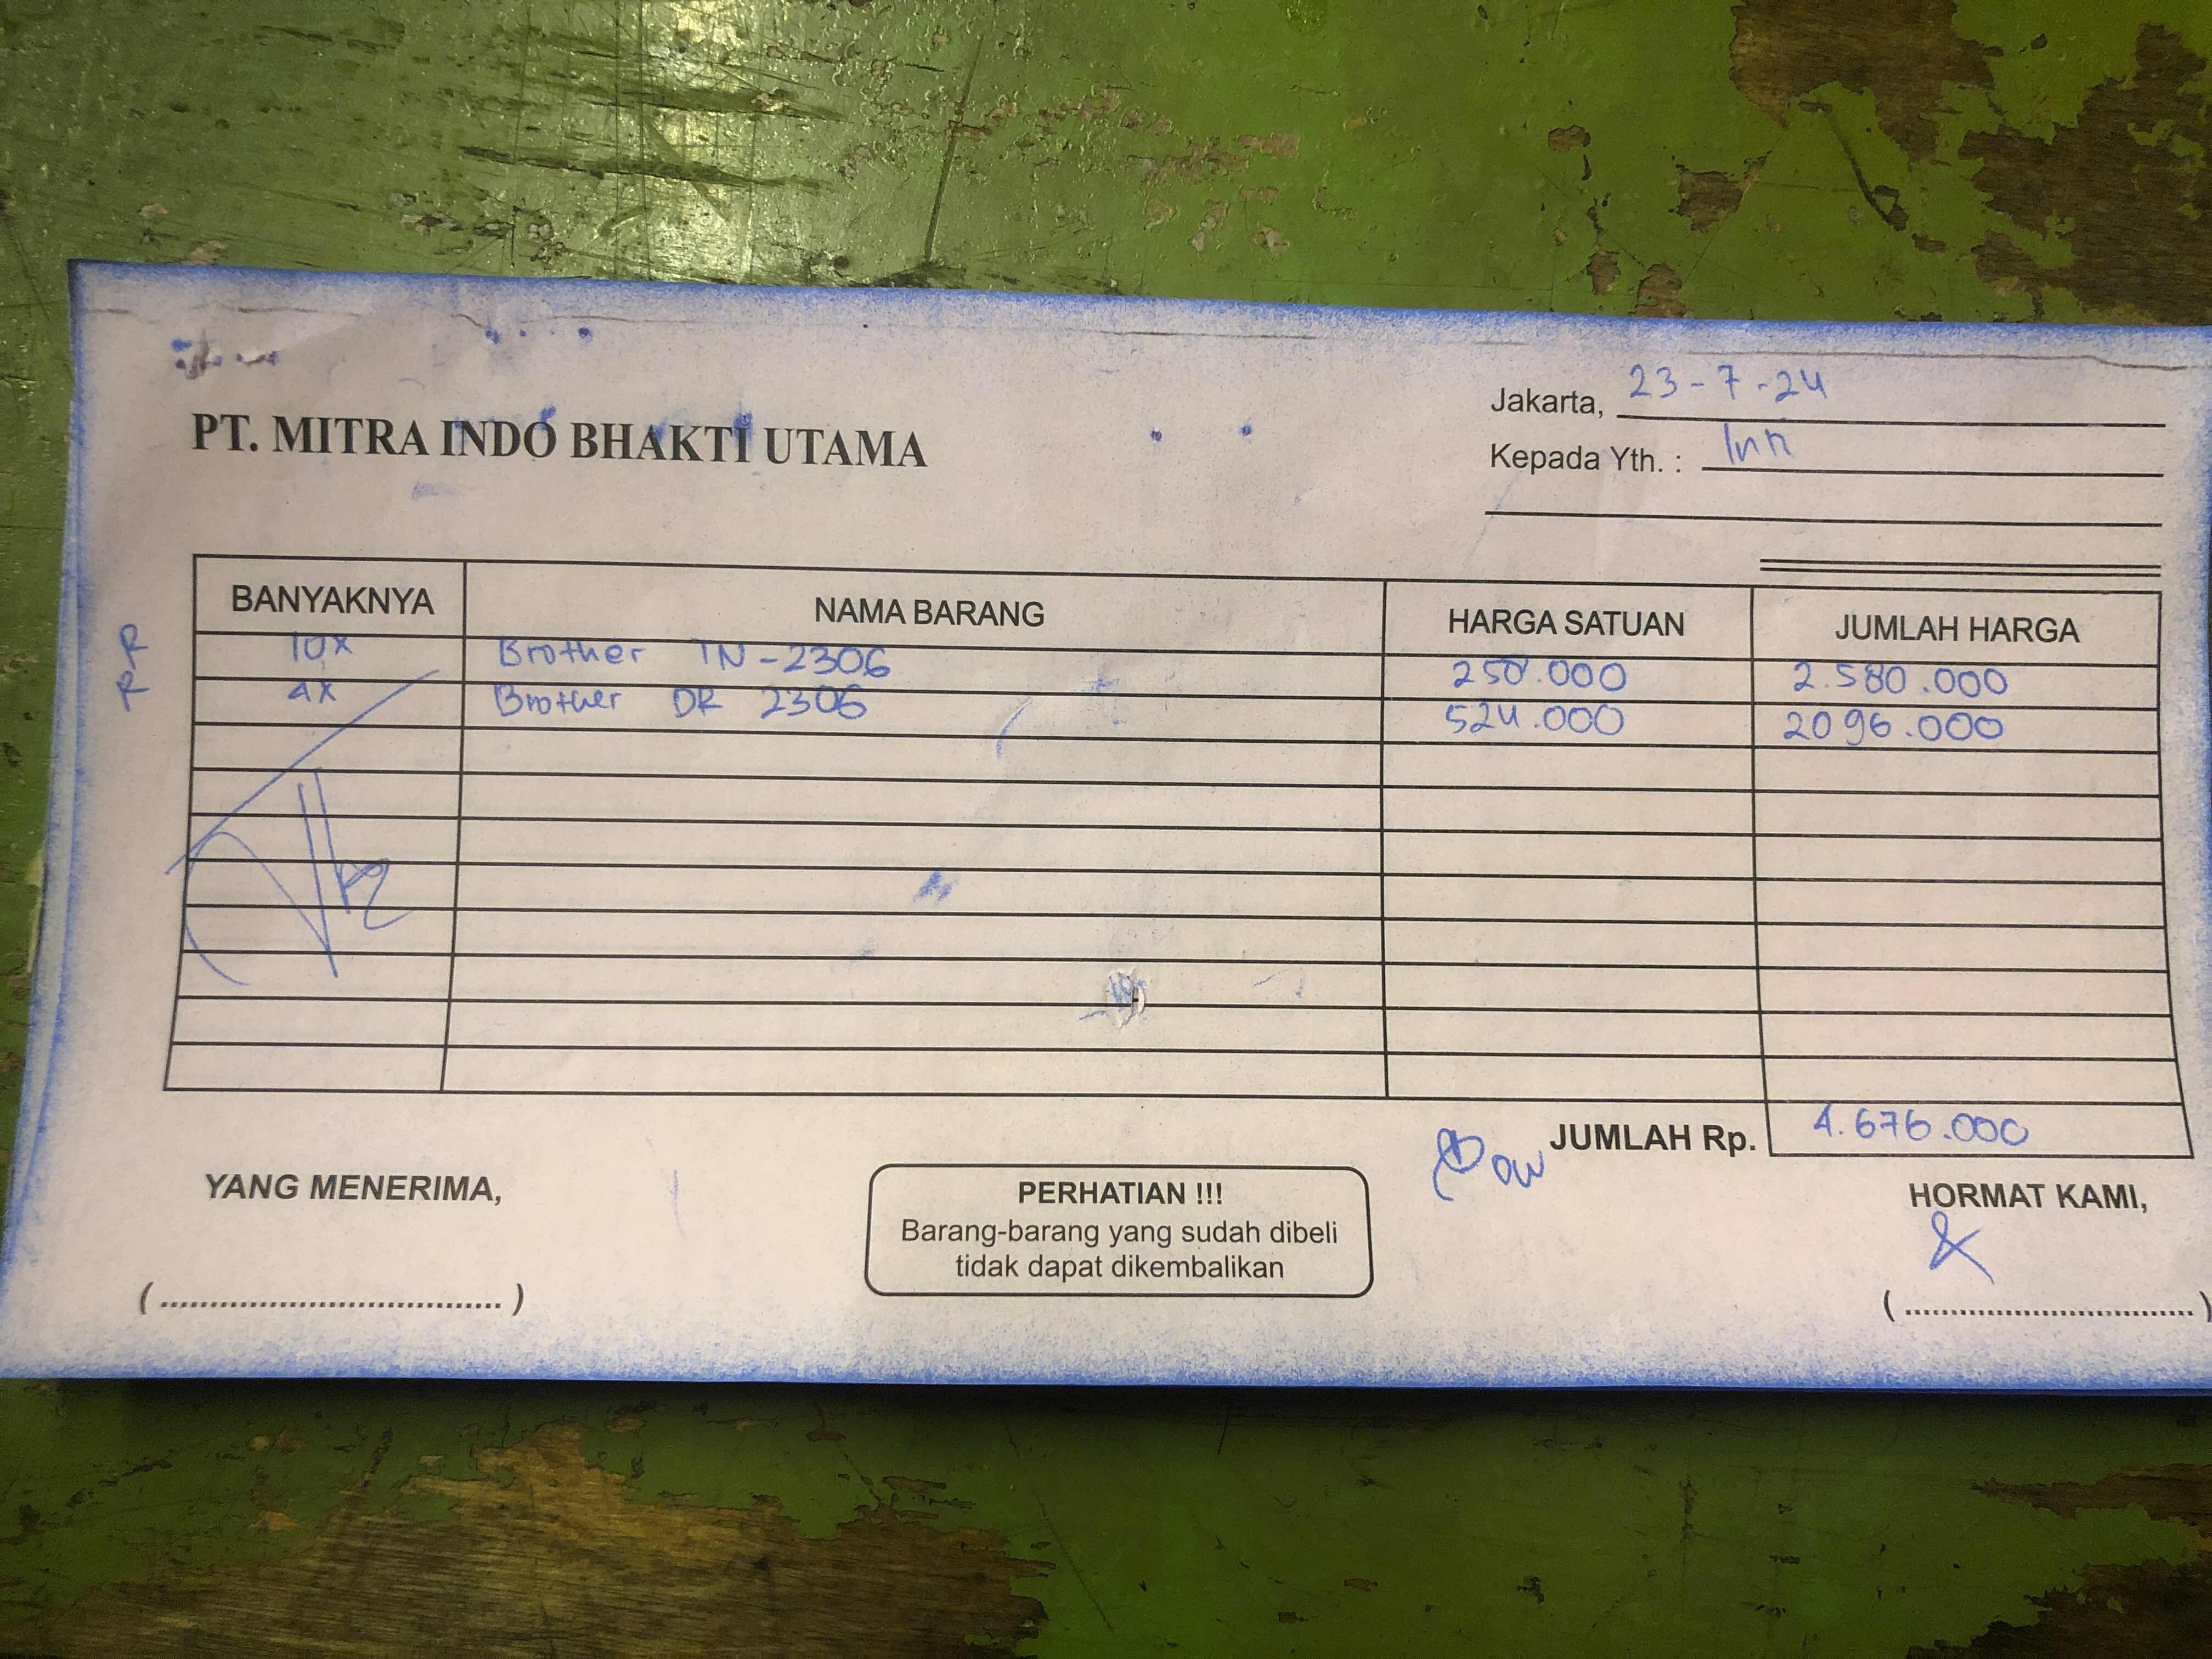 PT. MITRA INDO BHAKTI UTAMA
Jakarta, 23-7-24
Kepada Yth. :
BANYAKNYA NAMA BARANG HARGA SATUAN JUMLAH HARGA
R 10x Brother TN-2306 258.000 2.580.000
R 4x Brother DR 2306 524.000 2096.000
JUMLAH Rp. 4.676.000
YANG MENERIMA,
PERHATIAN !!!
Barang-barang yang sudah dibeli
tidak dapat dikembalikan
HORMAT KAMI,